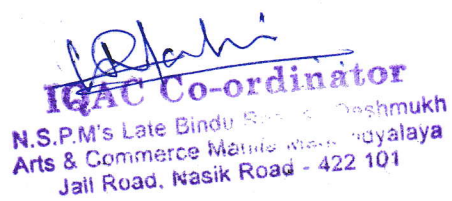 IQAC Co-ordinator
N.S.P.M's Late Bindu Deshmukh
Arts & Commerce Mahila
Jail Road, Nasik Road - 422 101